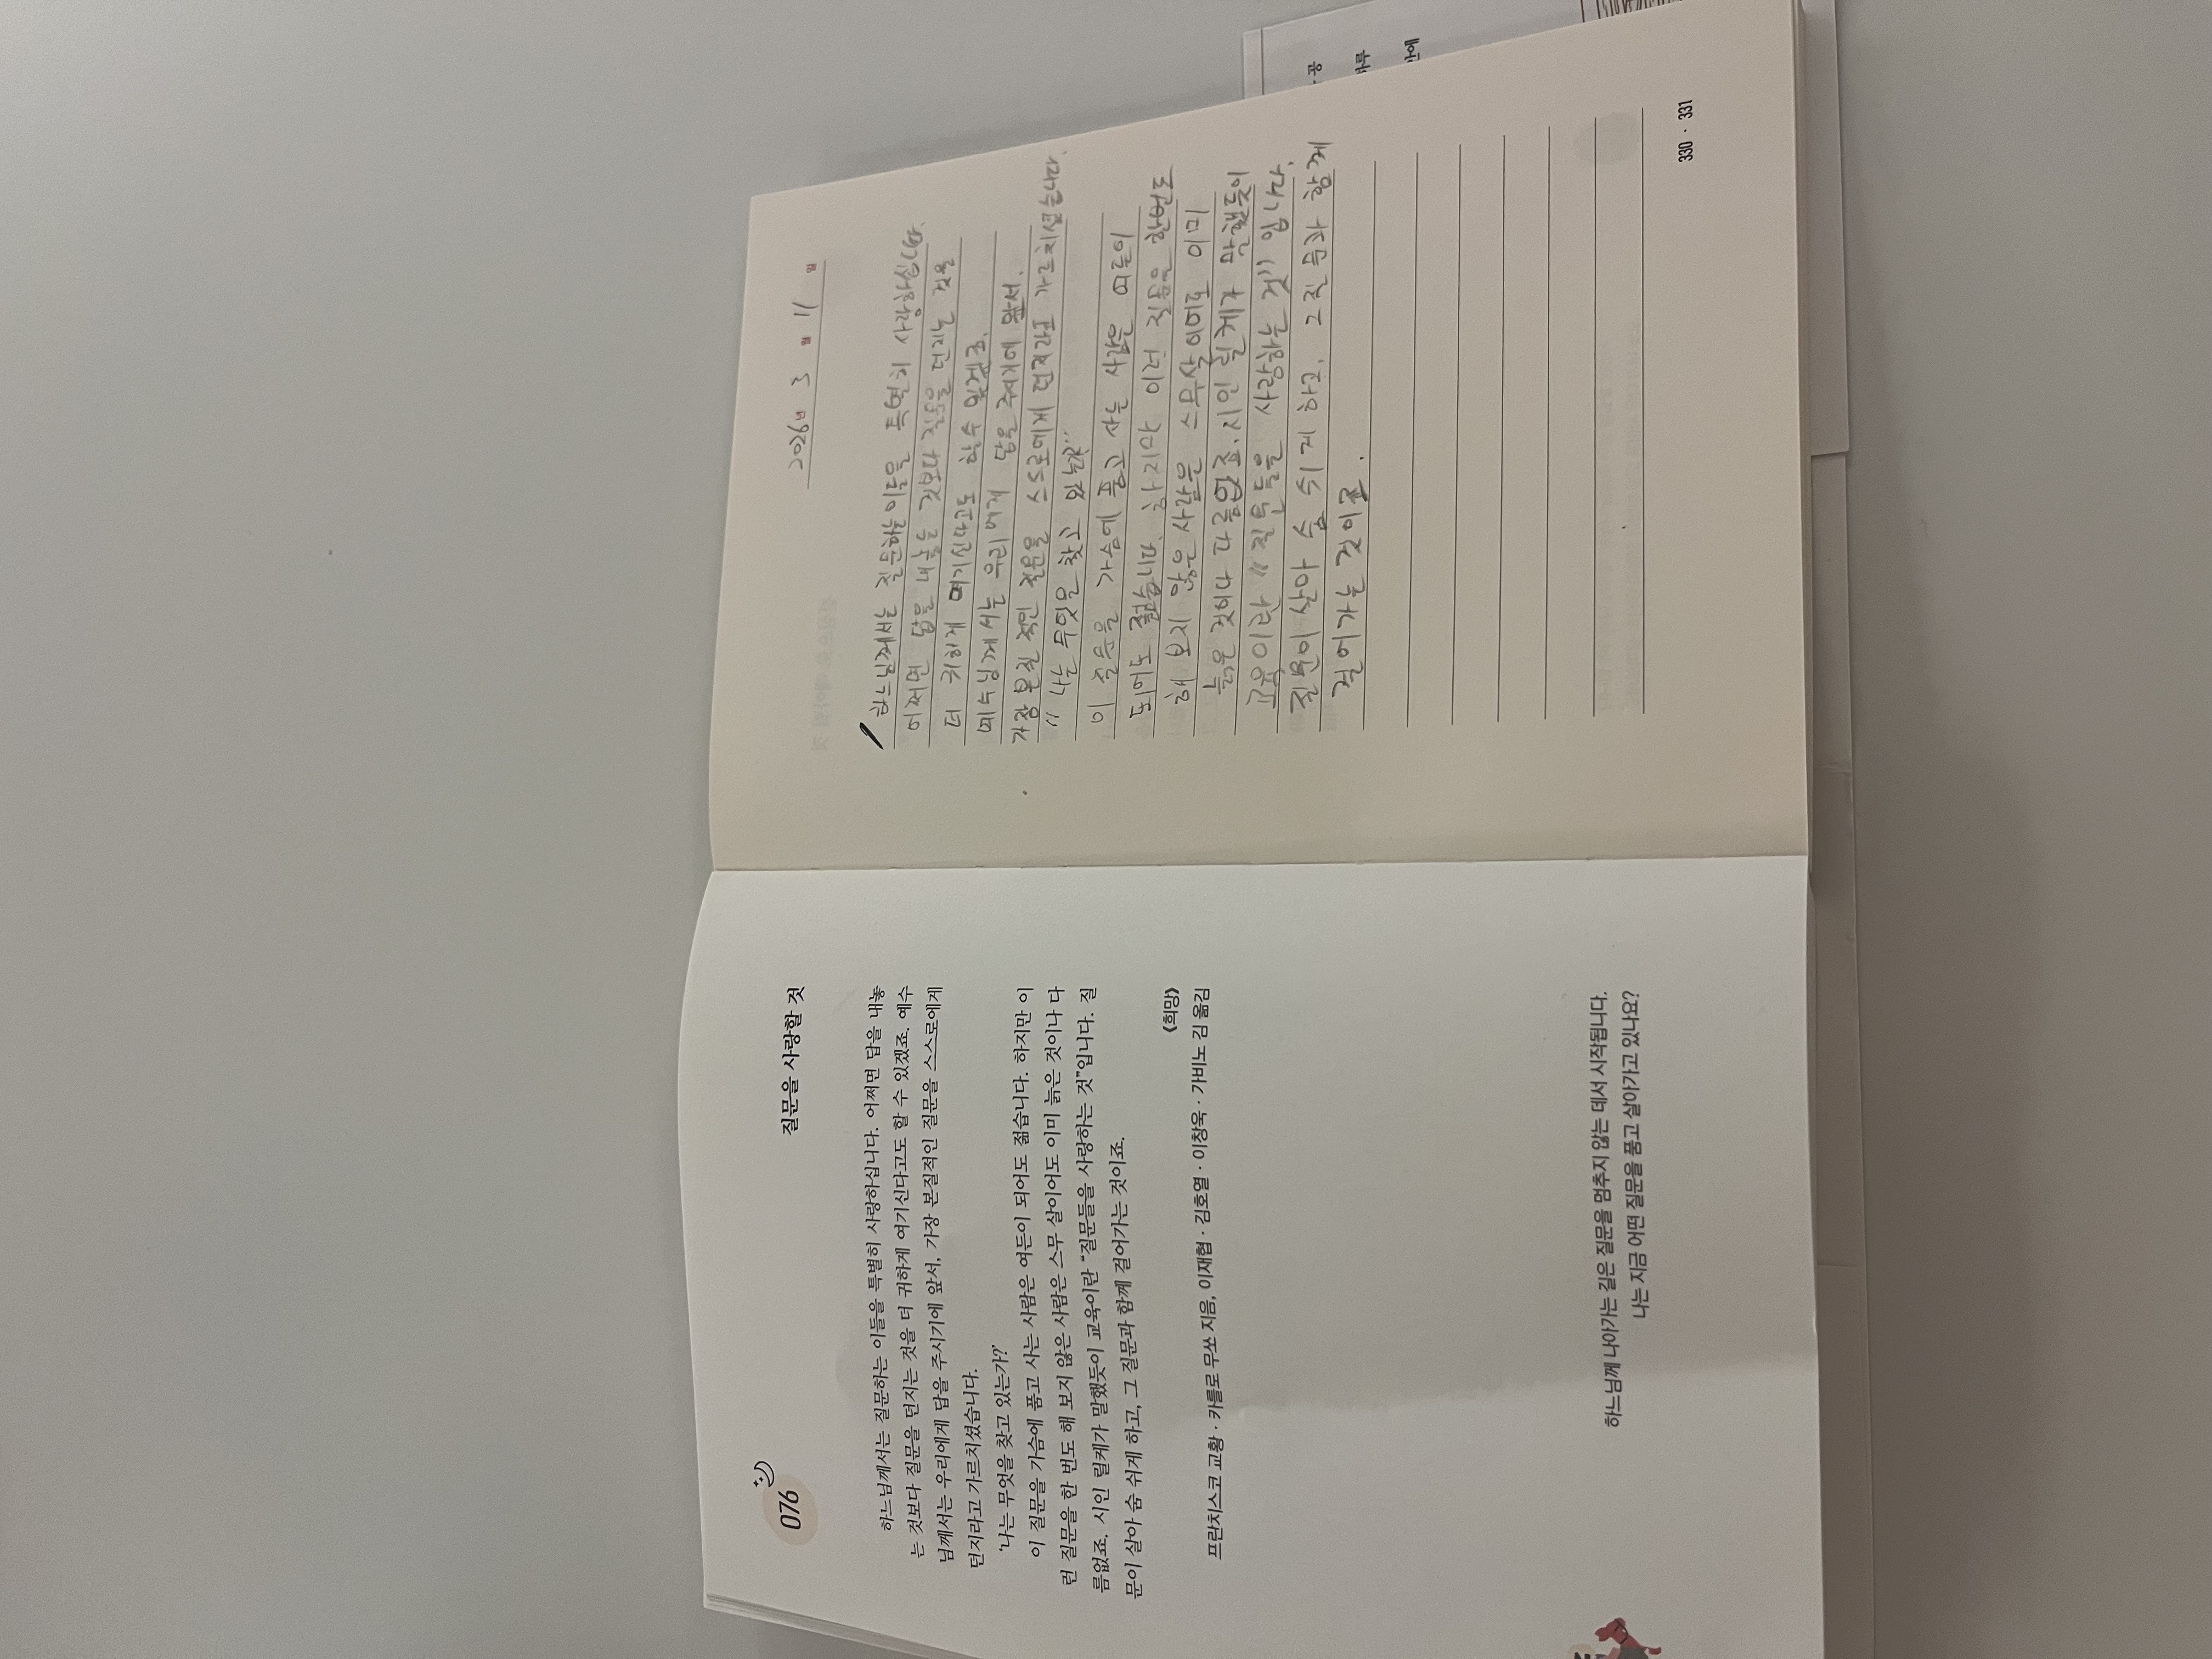 076
질문을 사랑할 것
하느님께서는 질문하는 이들을 특별히 사랑하십니다. 어쩌면 답을 내놓
는 것보다 질문을 던지는 것을 더 귀하게 여기신다고도 할 수 있겠죠. 예수
님께서는 우리에게 답을 주시기에 앞서, 가장 본질적인 질문을 스스로에게
던지라고 가르치셨습니다.
‘나는 무엇을 찾고 있는가?’
이 질문을 가슴에 품고 사는 사람은 여든이 되어도 젊습니다. 하지만 이
런 질문을 한 번도 해 보지 않은 사람은 스무 살이어도 이미 늙은 것이나 다
름없죠. 시인 릴케가 말했듯이 교육이란 “질문들을 사랑하는 것”입니다. 질
문이 살아 숨 쉬게 하고, 그 질문과 함께 걸어가는 것이죠.
《희망》
프란치스코 교황 · 카를로 무쏘 지음, 이재협 · 김호열 · 이창욱 · 가비노 김 옮김
하느님께 나아가는 길은 질문을 멈추지 않는 데서 시작됩니다.
나는 지금 어떤 질문을 품고 살아가고 있나요?
2026년 3월 11일
하느님께서는 질문하는 이들을 특별히 사랑하십니다.
어쩌면 답을 내놓는 것보다 질문을 던지는 것을
더 귀하게 여기신다고도 할수 있겠죠.
예수님께서는 우리에게 답을 주시기에 앞서.
가장 본질적인 질문을 스스로에게 던지라고 가르치셨습니다.
"나는 무엇을 찾고 있는가"
이 질문을 가슴에 품고 사는 사람은 여든이
되어도 젊습니다. 하지만 이런 질문을 한번도
해 보지 않은 사람은 스무살이어도 이미
늙은 것이나 다름없죠. 시인 릴케가 말했듯이
교육이란 "질문들을 사랑하는 것" 입니다.
질문이 살아 숨 쉬게 하고. 그 질문과 함께
걸어가는 것이죠.
330 · 331